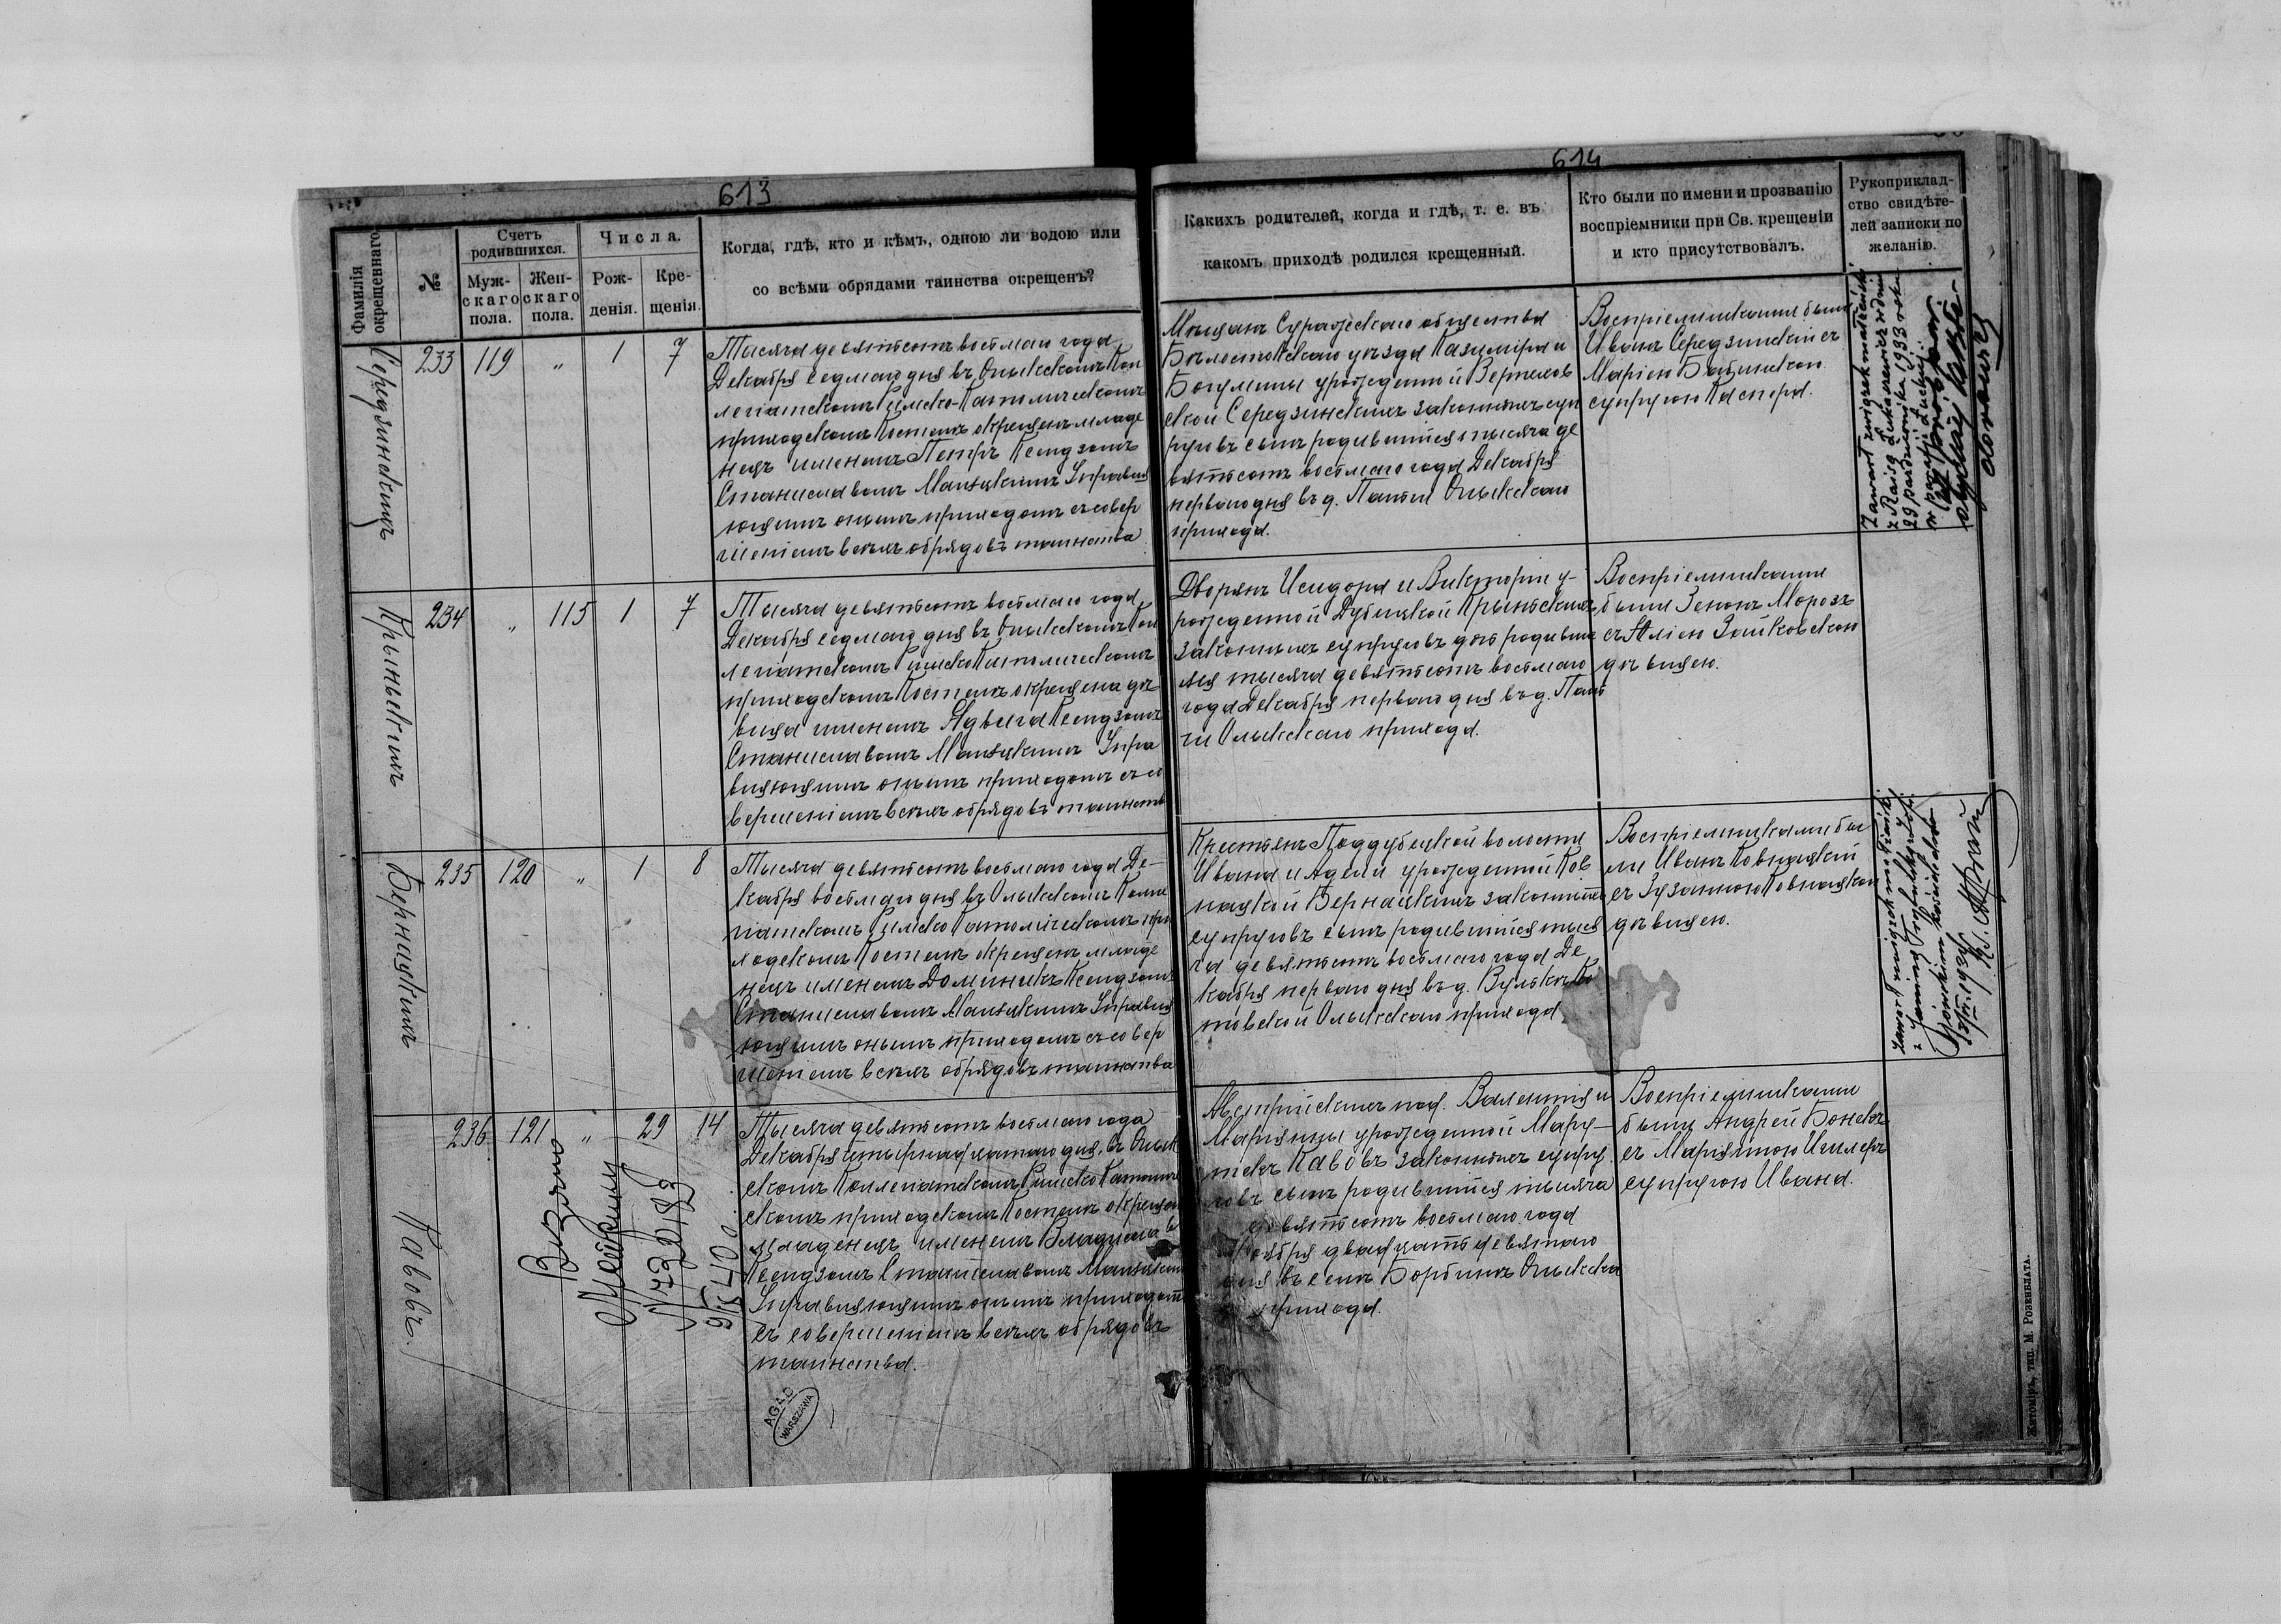 613
Фамилія окрещеннаго.
№
Счетъ родившихся.
Муж-
скаго
пола.
Жен-
скаго
пола.
Числа.
Рож-
денія.
Кре-
щенія.
Когда, гдѣ, кто и кѣмъ, одною ли водою или
со всѣми обрядами таинства окрещенъ?
Середзинскихъ
233 119 „ 1 7
Тысяча девятьсотъ восьмаго года
Декабря седмаго дня въ Олыкскомъ Кол
легіатскомъ Римско-Католическомъ
приходскомъ Костелѣ окрещенъ младе
нецъ именемъ Петръ Ксендзомъ
Станиславомъ Управля
ющимъ онымъ приходомъ съ совер
шеніемъ всѣхъ обрядовъ таинства
Крыньскихъ
234 „ 115 1 7
Тысяча девятьсотъ восьмаго года
Декабря седмаго дня въ Олыкскомъ Кол
легіатскомъ Римско Католическомъ
приходскомъ Костелѣ окрещена дѣ
вица именемъ Ядвига Ксендзомъ
Станиславомъ Упра
вляющимъ онымъ приходомъ съ со
вершеніемъ всѣхъ обрядовъ таинства
Бернацкихъ
235 120 „ 1 8
Тысяча девятьсотъ восьмаго года Де-
кабря восьмаго дня въ Олыкскомъ Колле
гіатскомъ Римско Католическомъ при
ходскомъ Костелѣ окрещенъ младе
нецъ именемъ Доминикъ Ксендзомъ
Станиславомъ Управля
ющимъ онымъ приходомъ съ совер
шеніемъ всѣхъ обрядовъ таинства
Кавовъ.
236 121 „ 29 14
Взято
Метрику
9/5 40
Тысяча девятьсотъ восьмаго года
Декабря четырнадцатаго дня въ Олык
скомъ Коллегіатскомъ Римско Католиче
скомъ приходскомъ Костелѣ окрещенъ
младенецъ именемъ Владиславъ
Ксендзомъ Станиславомъ
Управляющимъ онымъ приходомъ
съ совершеніемъ всѣхъ обрядовъ
таинства.
A.G.A.D
WARSZAWA
614
Какихъ родителей, когда и гдѣ, т. е. въ
какомъ приходѣ родился крещенный.
Кто были по имени и прозванію
воспріемники при Св. крещеніи
и кто присутствовалъ.
Рукоприклад-
ство свидѣте-
лей записки по
желанію.
Мѣщанъ Суражскаго общества
Бѣлостокскаго уѣзда Казиміра и
Богумилы урожденной Вержхов
ской Середзинскихъ законныхъ суп
руговъ сынъ родившійся тысяча де
вятьсотъ восьмаго года Декабря
перваго дня въ д. Олыкскаго
прихода.
Воспріемниками были
Иванъ Середзинскій съ
Маріею Бабинскою
супругою Каспера.
Zawarł związek małżeński
29 października 1933 roku
Дворянъ Исидора и Викторіи у-
рожденной Дубицкой Крыньскихъ
законныхъ супруговъ дочь родивша
яся тысяча девятьсотъ восьмаго
года Декабря перваго дня въ д.
Олыкскаго прихода.
Воспріемниками
были Зенонъ Морозъ
съ Зайковскою
дѣвицею.
Крестьянъ Поддубецкой волости
Ивана и Адели урожденной Ков
нацкой Бернацкихъ законныхъ
супруговъ сынъ родившійся тыся
ча девятьсотъ восьмаго года Де
кабря перваго дня въ д. Вулькѣ Ко
товской Олыкскаго прихода
Воспріемниками бы
ли Иванъ Ковнацкій
съ Зузанною Ковнацкою
дѣвицею.
Zawarł związek małżeński
z Janiną
Австрійскихъ под. Валентія и
Маріянны урожденной Мару-
Кавовъ законныхъ супру
говъ сынъ родившійся тысяча
девятьсотъ восьмаго года
Ноября двадцать девятаго
дня въ селѣ Борбинѣ Олыкска
прихода.
Воспріемниками
были Андрей
съ Маріянною
супругою Ивана.
Житоміръ, тип. М. Розенблата.